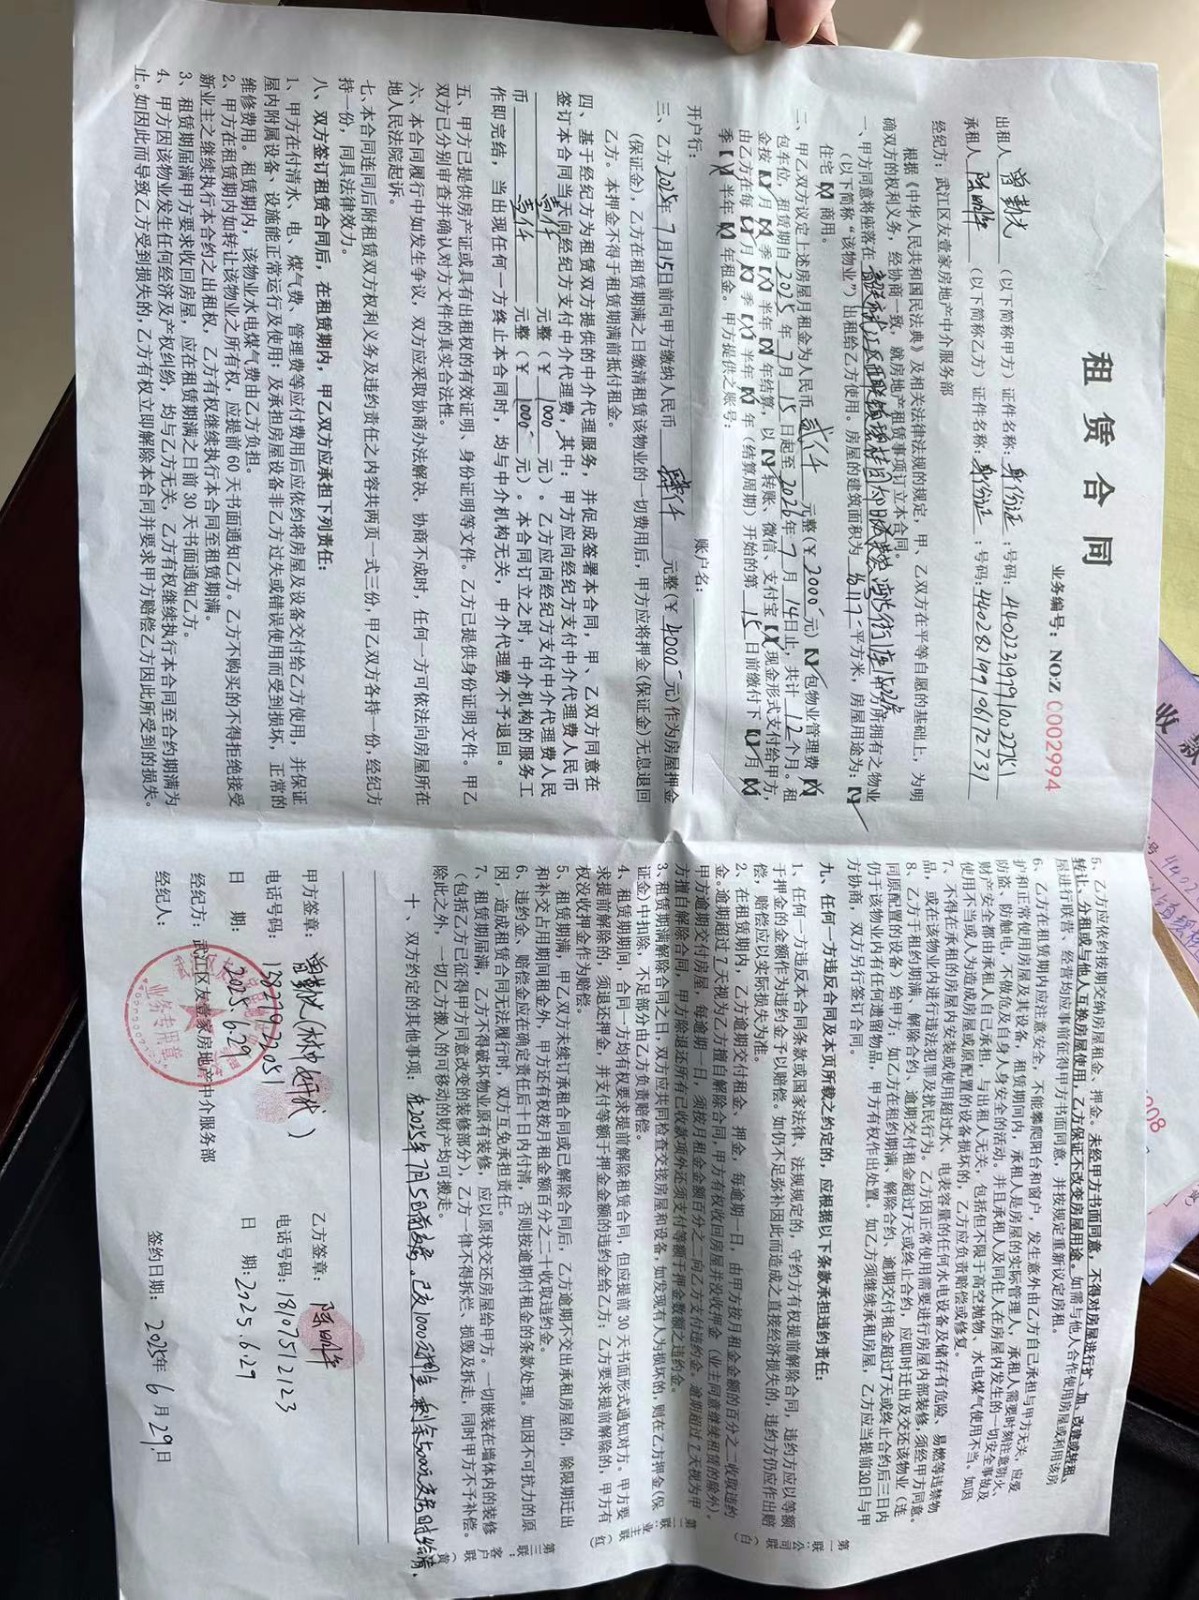 租 赁 合 同
业务编号：NO:Z C002994
出租人 （以下简称甲方）证件名称：身份证：号码：
承租人 （以下简称乙方）证件名称：身份证：号码：
经纪方：武江区友壹家房地产中介服务部
根据《中华人民共和国民法典》及相关法律法规的规定，甲、乙双方在平等自愿的基础上，为明
确双方的权利义务，经协商一致，就房地产租赁事项订立本合同。
一、甲方同意将座落在 单方所拥有之物业
（以下简称“该物业”）出租给乙方使用。房屋的建筑面积为 117 平方米，房屋用途为：【√】
住宅【X】商用。
二、甲乙双方议定上述房屋月租金为人民币 贰仟 元整（￥2000 元）【√】包物业管理费【X】
包车位，租赁期自 2025 年 7 月 15 日起至 2026 年 7 月 14 日止，共计 12 个月。租
金按【√】月【X】季【X】半年【X】年结算，以【√】转账、微信、支付宝【X】现金形式支付给甲方，
由乙方在每【√】月【X】季【X】半年【X】年（结算周期）开始的第 15 日前缴付下【√】月【X】
季【X】半年【X】年租金。甲方提供之账号：
开户行： 账户名：
三、乙方 2025年 7 月 15 日前向甲方缴纳人民币 肆仟 元整（￥4000 元）作为房屋押金
（保证金），乙方在租赁期满之日缴清租赁该物业的一切费用后，甲方应将押金（保证金）无息退回
乙方。本押金不得于租赁期满前抵付租金。
四、基于经纪方为租赁双方提供的中介代理服务，并促成签署本合同，甲、乙双方同意在
签订本合同当天向经纪方支付中介代理费，其中：甲方应向经纪方支付中介代理费人民币
壹仟 元整（￥1000 元）。乙方应向经纪方支付中介代理费人民
币 壹仟 元整（￥1000 元）。本合同订立之时，中介机构的服务工
作即完结，当出现任何一方终止本合同时，均与中介机构无关，中介代理费不予退回。
五、甲方已提供房产证或具有出租权的有效证明、身份证明等文件。乙方已提供身份证明文件。甲乙
双方已分别审查并确认对方文件的真实合法性。
六、本合同履行中如发生争议，双方应采取协商办法解决，协商不成时，任何一方可依法向房屋所在
地人民法院起诉。
七、本合同连同后附租赁双方权利义务及违约责任之内容共两页一式三份，甲乙双方各持一份，经纪方
持一份，同具法律效力。
八、双方签订租赁合同后，在租赁期内，甲乙双方应承担下列责任：
1、甲方在付清水、电、煤气费、管理费等应付费用后应依约将房屋及设备交付给乙方使用，并保证
屋内附属设备、设施能正常运行及使用；及承担房屋设备非乙方过失或错误使用而受到损坏，正常的
维修费用。租赁期内，该物业水电煤气费由乙方负担。
2、甲方在租赁期内如转让该物业之所有权，应提前60天书面通知乙方。乙方不购买的不得拒绝接受
新业主之继续执行本合约之出租权，乙方有权继续执行本合同至租赁期满。
3、租赁期届满甲方要求收回房屋，应在租赁期满之日前30天书面通知乙方。
4、甲方因该物业发生任何经济及产权纠纷，均与乙方无关，乙方有权继续执行本合同至合约期满为
止。如因此而导致乙方受到损失的，乙方有权立即解除本合同并要求甲方赔偿乙方因此所受到的损失。
5、乙方应依约按期交纳房屋租金、押金。未经甲方书面同意，不得对房屋进行扩、加、改建或转租、
转让、分租或与他人互换房屋使用，乙方保证不改变房屋用途。如需与他人合作使用房屋或利用该房
屋进行联营、经营均应事前征得甲方书面同意，并按规定重新议定房租。
6、乙方在租赁期内应注意安全，不能攀爬阳台和窗户，发生意外由乙方自己承担与甲方无关，应爱
护和正常使用房屋及其设备，租赁期间内，承租人是房屋的实际管理人，承租人需要时刻注意防火、
防盗、防触电，不做危及自身人身安全的活动。并且承租人及同住人在房屋内发生的一切安全事故及
财产安全都由承租人自己承担，与出租人无关，包括但不限于高空抛物、水电煤气使用不当。如因
使用不当或人为造成房屋或原配置的设备损坏的，乙方应负责赔偿或修复。
7、不得在承租的房屋内安装或使用超过水、电表容量的任何水电设备及储存有危险、易燃等违禁物
品，或在该物业内进行违法犯罪及扰民行为。乙方因正常使用需要进行房屋内部装修，须经甲方同意。
8、乙方于租约期满、解除合约、逾期交付租金超过7天或终止合约，应即时迁出及交还该物业（连
同原配置的设备）给甲方；如乙方在租约期满、解除合约、逾期交付租金超过7天或终止合约后三日内
仍于该物业内有任何遗留物品，甲方有权作出处置。如乙方须继续承租房屋，乙方应当提前30日与甲
方协商，双方另行签订合同。
九、任何一方违反合同及本页所载之约定的，应根据以下条款承担违约责任：
1、任何一方违反本合同条款或国家法律、法规规定的，守约方有权提前解除合同，违约方应以等额
于押金的金额作为违约金予以赔偿。如仍不足弥补因此而造成之直接经济损失的，违约方仍应作出赔
偿，赔偿应以实际损失为准。
2、在租赁期内，乙方逾期交付租金、押金，每逾期一日，由甲方按月租金金额的百分之二收取违约
金。逾期超过7天视为乙方擅自解除合同，甲方有权收回房屋并没收押金（业主同意继续租赁的除外）。
甲方逾期交付房屋，每逾期一日，须按月租金金额百分之二向乙方支付违约金。逾期超过7天视为甲
方擅自解除合同，甲方除退还所有已收款项外还须支付等额于押金数额之违约金。
3、租赁期满解除合同之日，双方应共同检查交接房屋和设备，如发现有人为损坏的，则在乙方押金（保
证金）中扣除，不足部分由乙方负责赔偿。
4、租赁期期间，合同一方均有权要求提前解除租赁合同，但应提前30天书面形式通知对方。甲方要
求提前解除的，须退还押金，并支付等额于押金金额的违约金给乙方；乙方要求提前解除的，甲方有
权没收押金作为赔偿。
5、租赁期满，甲乙双方未续订承租合同或已解除合同后，乙方逾期不交出承租房屋的，除限期迁出
和补交占用期间租金外，甲方还有权按月租金额百分之二十收取违约金。
6、违约金、赔偿金应在确定责任后十日内付清，否则按逾期付租金的条款处理。如因不可抗力的原
因，造成租赁合同无法履行时，双方互免承担责任。
7、租赁期届满，乙方不得破坏物业原有装修，应以原状交还房屋给甲方。一切嵌装在墙体内的装修
（包括乙方已征得甲方同意改变的装修部分），乙方一律不得拆烂、损毁及拆走，同时甲方不予补偿。
除此之外，一切乙方搬入的可移动的财产均可搬走。
第一联：公司联（白） 第二联：业主联（红） 第三联：客户联（黄）
十、双方约定的其他事项：在2025年7月5日前交房。已交1000定押金 剩余5000元交房时给清。
甲方签章： 乙方签章：
电话号码：13727922051 电话号码：18107512123
日 期：2025.6.29 日 期：2025.6.29
经纪方：武江区友壹家房地产中介服务部
经纪人： 签约日期：2025年 6 月 29 日
业务专用章